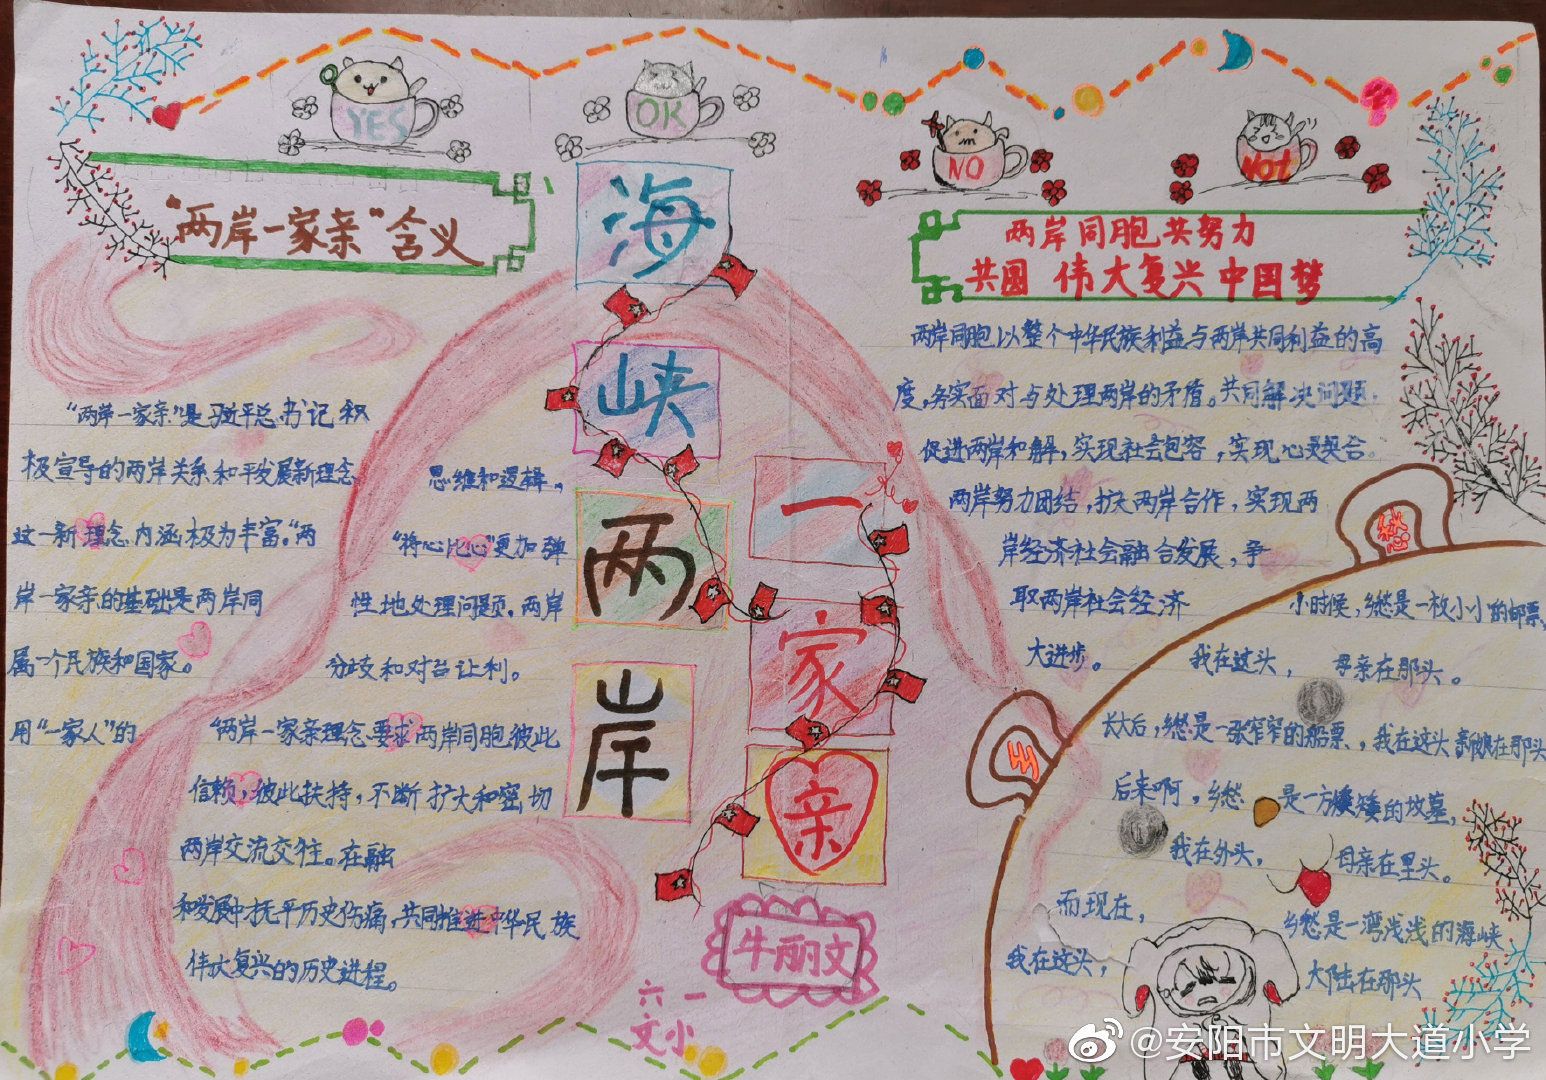 YES
OK
NO
Not
“两岸一家亲”含义
海
峡
两
岸
一
家
亲
“两岸一家亲”是习近平总书记积
极宣导的两岸关系和平发展新理念
这一新理念内涵极为丰富。“两
岸一家亲的基础是两岸同
属一个民族和国家。
用“一家人”的
思维和逻辑。
“将心比心”更加弹
性地处理问题。两岸
分歧和对台让利。
两岸一家亲理念要求两岸同胞彼此
信赖,彼此扶持,不断扩大和密切
两岸交流交往。在融
和发展中抚平历史伤痛,共同推进中华民族
伟大复兴的历史进程。
牛丽文
六一
文小
两岸同胞共努力
共圆 伟大复兴中国梦
两岸同胞以整个中华民族利益与两岸共同利益的高
度,务实面对与处理两岸的矛盾。共同解决问题,
促进两岸和解,实现社会包容,实现心灵契合。
两岸努力团结,扩大两岸合作,实现两
岸经济社会融合发展,争
取两岸社会经济
大进步。
乡
愁
小时候,乡愁是一枚小小的邮票,
我在这头, 母亲在那头。
长大后,乡愁是一张窄窄的船票,我在这头新娘在那头
后来啊,乡愁是一方矮矮的坟墓,
我在外头, 母亲在里头。
而现在,
乡愁是一湾浅浅的海峡
我在这头, 大陆在那头
@安阳市文明大道小学